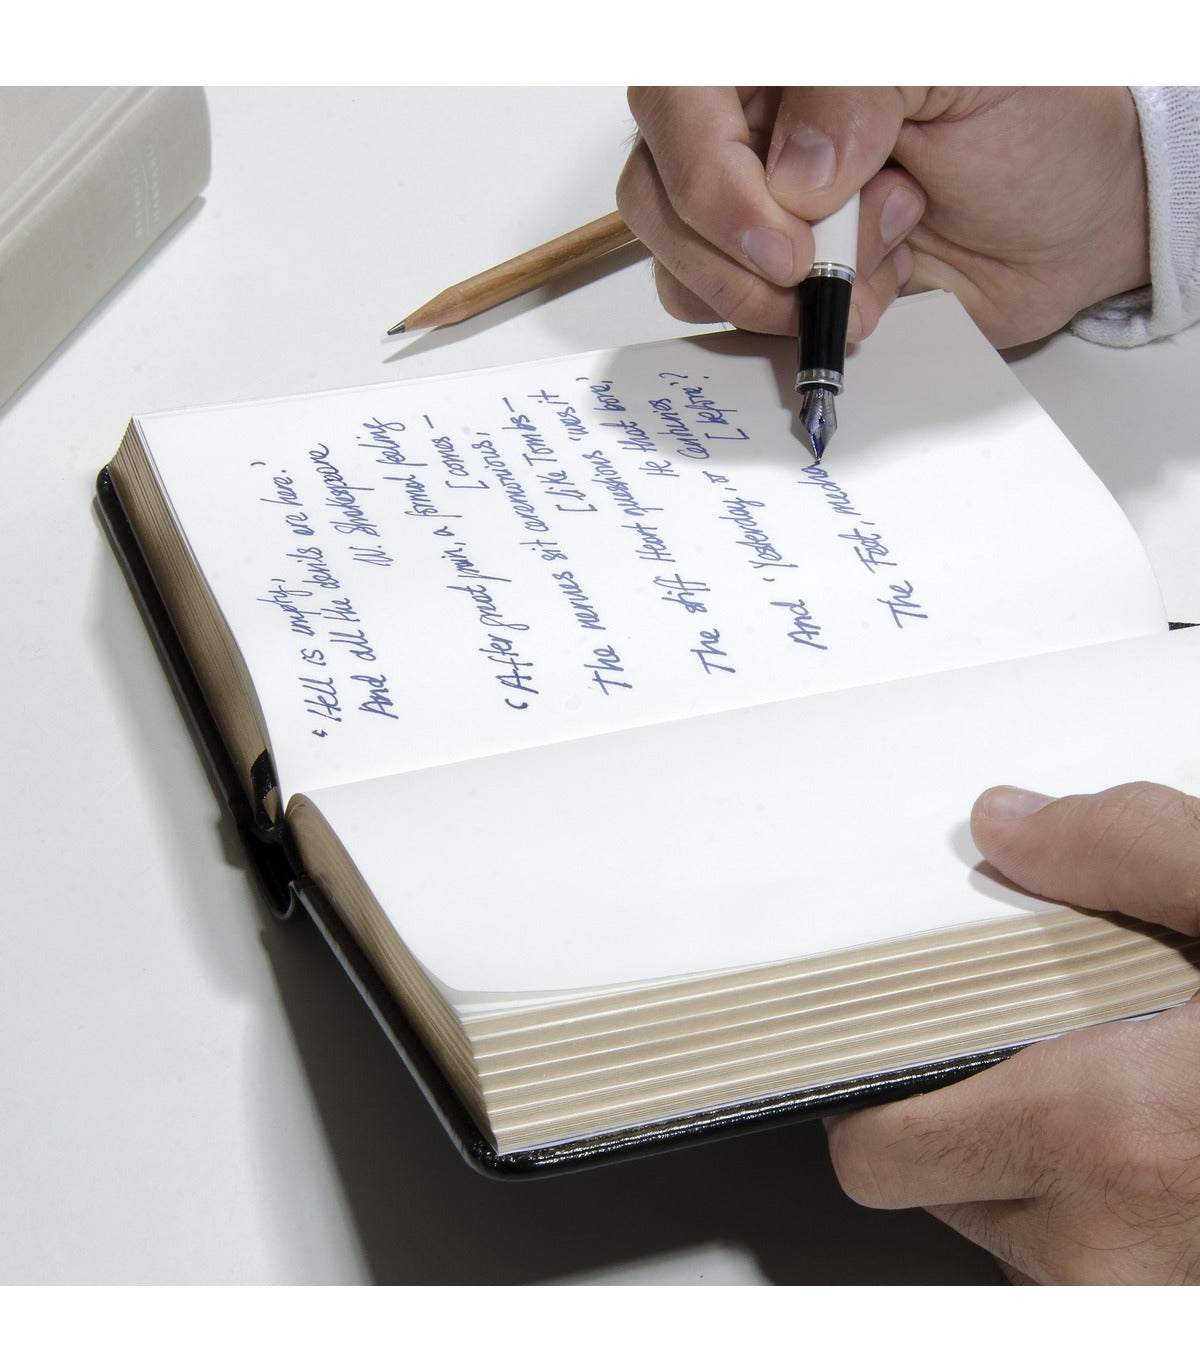 'Hell is empty,
And all the devils are here.'
W. Shakespeare
'After great pain, a formal feeling
[comes –
The nerves sit ceremonious,
[like Tombs –
The stiff Heart questions 'was it
He that bore,'
And 'Yesterday, or Centuries
[before'?
The Feet, mechan